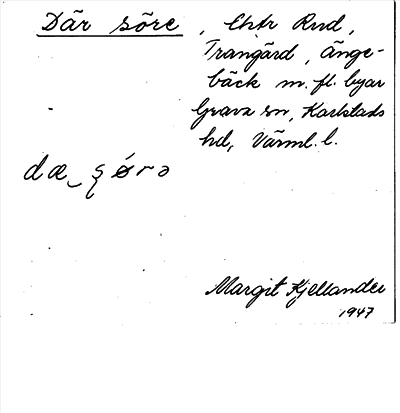 Där söre, Ehtr Rud,
Trangärd, Änge-
bäck m. fl. byar
Grava sn, Karlstads
hd, Värml. l.
dæ‿ şørə
Margit Kjellander
1947